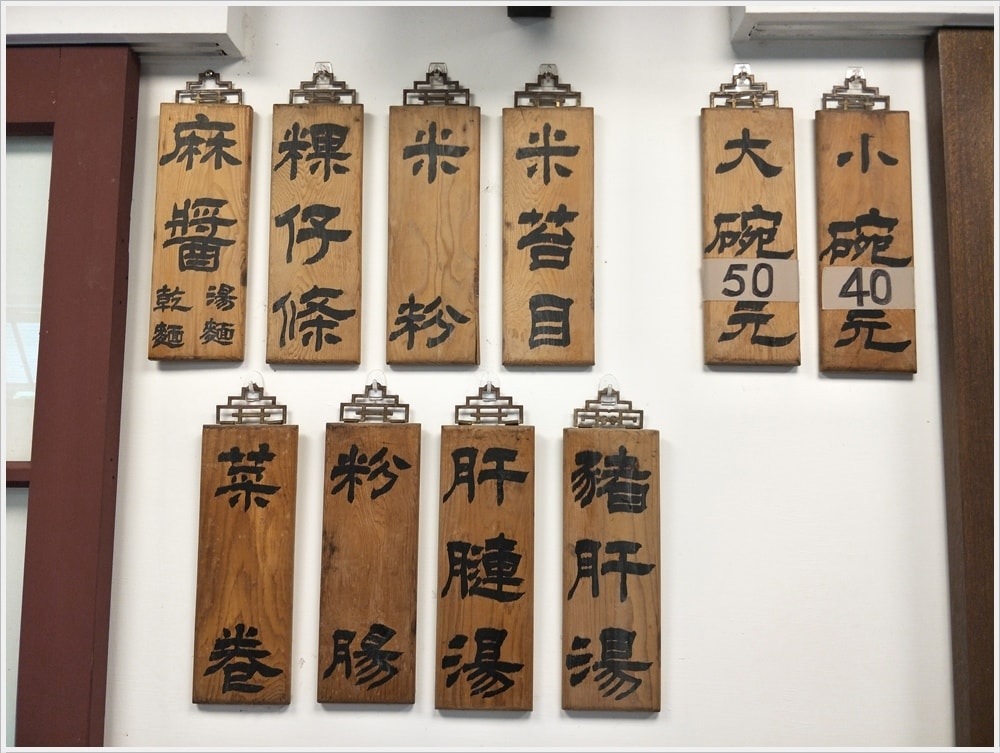 麻醬
乾麵
湯麵
粿仔條
米粉
米苔目
大碗50元
小碗40元
菜卷
粉腸
肝
湯
豬肝湯